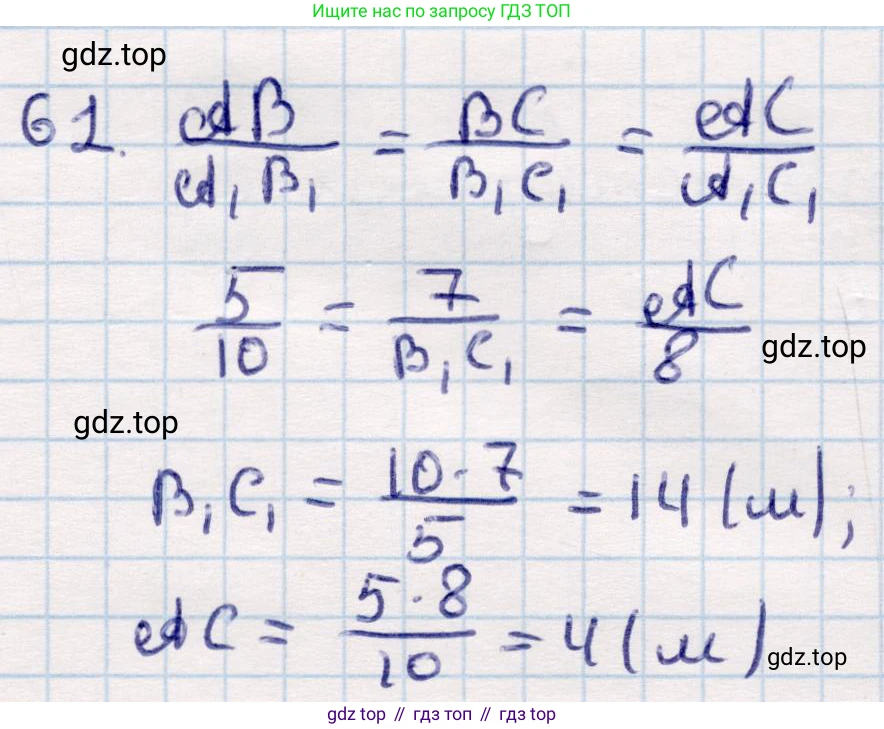 Ищите нас по запросу ГДЗ ТОП
gdz.top
61. AB/A₁B₁ = BC/B₁C₁ = AC/A₁C₁
5/10 = 7/B₁C₁ = AC/8
gdz.top
gdz.top
B₁C₁ = 10·7/5 = 14 (м);
AC = 5·8/10 = 4 (м)
gdz.top
gdz top // гдз топ // гдз top